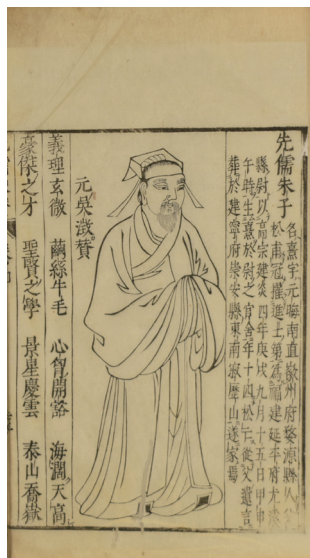 先儒朱子
名熹字元晦南直徽州府婺源縣人父
松甫冠擢進士第爲福建延平府尤溪
縣尉以高宗建炎四年庚戌九月十五日甲申
午時生熹於尉之官舍年十四松亡從父遺言
葬於建寧府崇安縣東南寂歷山遂家焉
元吳澂贊
義理玄微 繭絲牛毛 心胷開豁 海濶天高
豪傑之才 聖賢之學 景星慶雲 泰山喬嶽